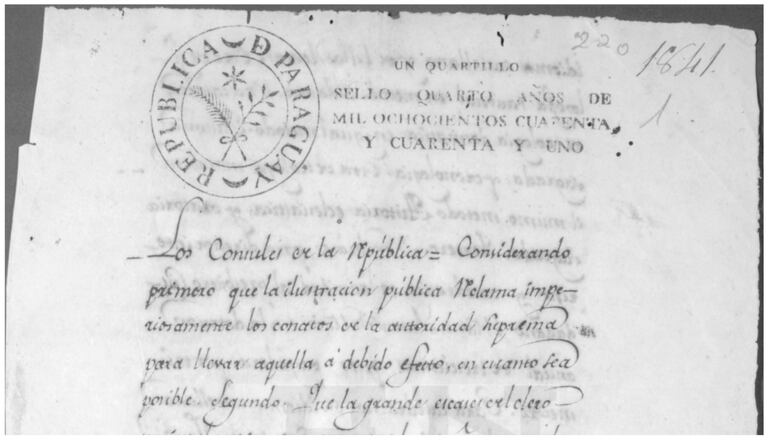 REPUBLICA D PARAGUAY
220
1841.
1
UN QUARTILLO
SELLO QUARTO AÑOS DE
MIL OCHOCIENTOS CUARENTA,
Y CUARENTA Y UNO
Los Consules de la Rpública = Considerando
primero que la ilustracion pública Reclama impe-
riosamente los conatos de la autoridad suprema
para llevar aquella á debido efecto, en cuanto sea
posible. Segundo. Que la grande escases de clero